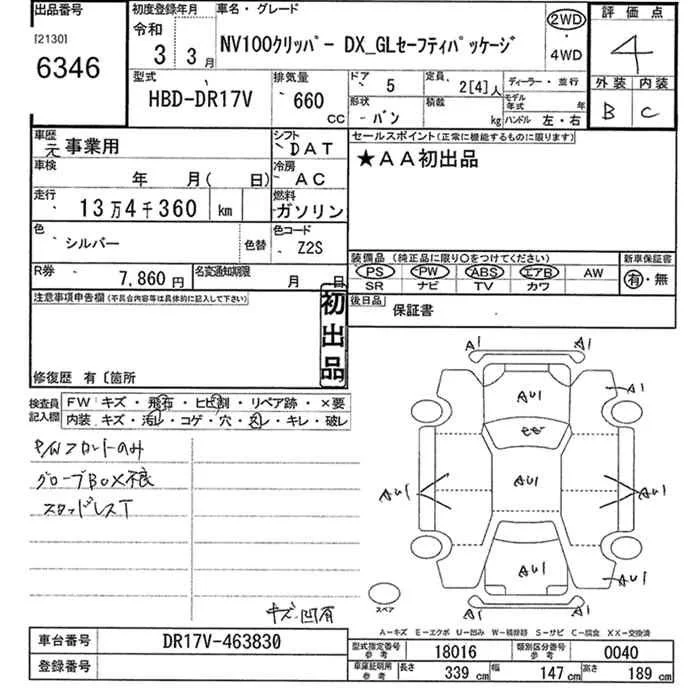 出品番号
[2130]
6346
初度登録年月
令和
3年 3月
車名・グレード
NV100クリッパー DX_GLセーフティパッケージ
2WD
・
4WD
評価点
4
外装 内装
B C
型式
HBD-DR17V
排気量
660
CC
ドア 5
定員 2[4]人
ディーラー・並行
形状 バン
積載 kg
モデル年式 年
ハンドル 左・右
車歴
元 事業用
シフト
DAT
セールスポイント(正常に機能するものに限ります)
★AA初出品
車検
年 月( 日)
冷房
AC
走行
13万4千360 km
燃料
ガソリン
色
シルバー
色替
色コード
Z2S
装備品 (純正品に限り○をつけてください)
PS PW ABS エアB AW
SR ナビ TV カワ
新車保証書
有・無
R券
7,860円
名変通知期限
月 日
後日品
保証書
注意事項申告欄(不具合内容等は具体的に記入して下さい)
初出品
修復歴 有〔箇所
検査員
記入欄
FW キズ・飛石・ヒビ割・リペア跡・×要
内装 キズ・汚レ・コゲ・穴・スレ・キレ・破レ
P/Wフロントのみ
グローブBOX不良
スタッドレスT
キズ・凹有
A1 A1
AU1
A1
AU1 AU1 AU1
AU1
AU1
スペア
A-キズ E-エクボ U-凹み W-補修跡 S-サビ C-腐食 XX-交換済
車台番号
DR17V-463830
登録番号
型式指定番号
参考
18016
類別区分番号
参考
0040
車庫証明用
参考
長さ 339 cm
幅 147 cm
高さ 189 cm